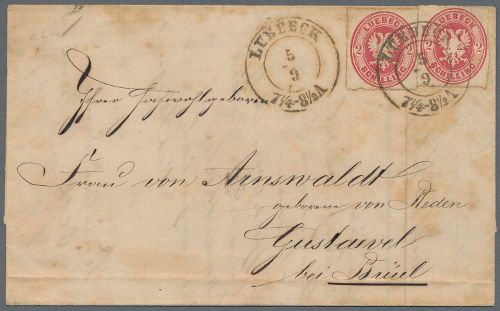 LUEBECK
5
9
7¼-8½A
LUEBECK
2 2
SCHILLING
LUEBECK
2
SCHILLING
LUEBECK
5
9
7¼-8½A
Ihrer Hochwohlgeboren
Frau von Arnswaldt
geborene von Reden
Gustaevel
bei Brüel